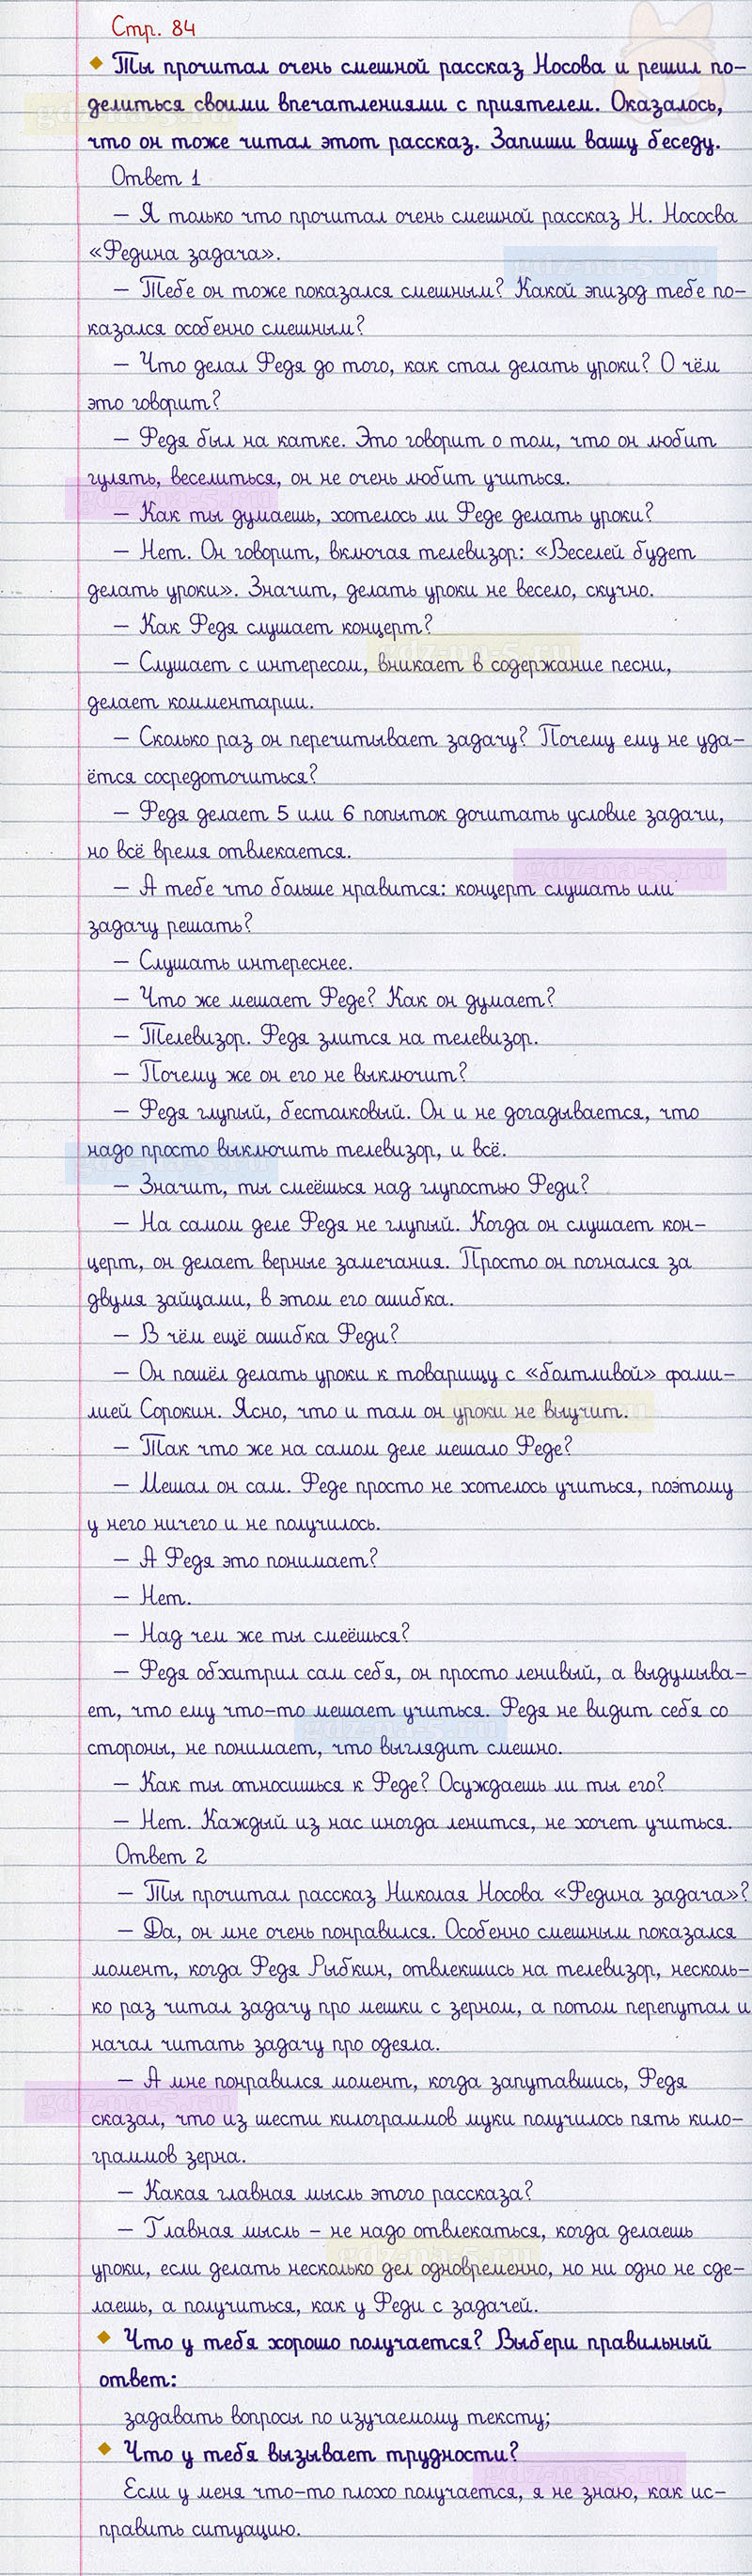 Стр. 84
Ты прочитал очень смешной рассказ Носова и решил по-
делиться своими впечатлениями с приятелем. Оказалось,
что он тоже читал этот рассказ. Запиши вашу беседу.
Ответ 1
– Я только что прочитал очень смешной рассказ Н. Нососва
«Федина задача».
– Тебе он тоже показался смешным? Какой эпизод тебе по-
казался особенно смешным?
– Что делал Федя до того, как стал делать уроки? О чём
это говорит?
– Федя был на катке. Это говорит о том, что он любит
гулять, веселиться, он не очень любит учиться.
– Как ты думаешь, хотелось ли Феде делать уроки?
– Нет. Он говорит, включая телевизор: «Веселей будет
делать уроки». Значит, делать уроки не весело, скучно.
– Как Федя слушает концерт?
– Слушает с интересом, вникает в содержание песни,
делает комментарии.
– Сколько раз он перечитывает задачу? Почему ему не уда-
ётся сосредоточиться?
– Федя делает 5 или 6 попыток дочитать условие задачи,
но всё время отвлекается.
– А тебе что больше нравится: концерт слушать или
задачу решать?
– Слушать интереснее.
– Что же мешает Феде? Как он думает?
– Телевизор. Федя злится на телевизор.
– Почему же он его не выключит?
– Федя глупый, бестолковый. Он и не догадывается, что
надо просто выключить телевизор, и всё.
– Значит, ты смеёшься над глупостью Феди?
– На самом деле Федя не глупый. Когда он слушает кон-
церт, он делает верные замечания. Просто он погнался за
двумя зайцами, в этом его ошибка.
– В чём ещё ошибка Феди?
– Он пошёл делать уроки к товарищу с «болтливой» фами-
лией Сорокин. Ясно, что и там он уроки не выучит.
– Так что же на самом деле мешало Феде?
– Мешал он сам. Феде просто не хотелось учиться, поэтому
у него ничего и не получилось.
– А Федя это понимает?
– Нет.
– Над чем же ты смеёшься?
– Федя обхитрил сам себя, он просто ленивый, а выдумыва-
ет, что ему что-то мешает учиться. Федя не видит себя со
стороны, не понимает, что выглядит смешно.
– Как ты относишься к Феде? Осуждаешь ли ты его?
– Нет. Каждый из нас иногда ленится, не хочет учиться.
Ответ 2
– Ты прочитал рассказ Николая Носова «Федина задача»?
– Да, он мне очень понравился. Особенно смешным показался
момент, когда Федя Рыбкин, отвлекшись на телевизор, несколь-
ко раз читал задачу про мешки с зерном, а потом перепутал и
начал читать задачу про одеяла.
– А мне понравился момент, когда запутавшись, Федя
сказал, что из шести килограммов муки получилось пять кило-
граммов зерна.
– Какая главная мысль этого рассказа?
– Главная мысль – не надо отвлекаться, когда делаешь
уроки, если делать несколько дел одновременно, но ни одно не сде-
лаешь, а получиться, как у Феди с задачей.
Что у тебя хорошо получается? Выбери правильный
ответ:
задавать вопросы по изучаемому тексту;
Что у тебя вызывает трудности?
Если у меня что-то плохо получается, я не знаю, как ис-
править ситуацию.